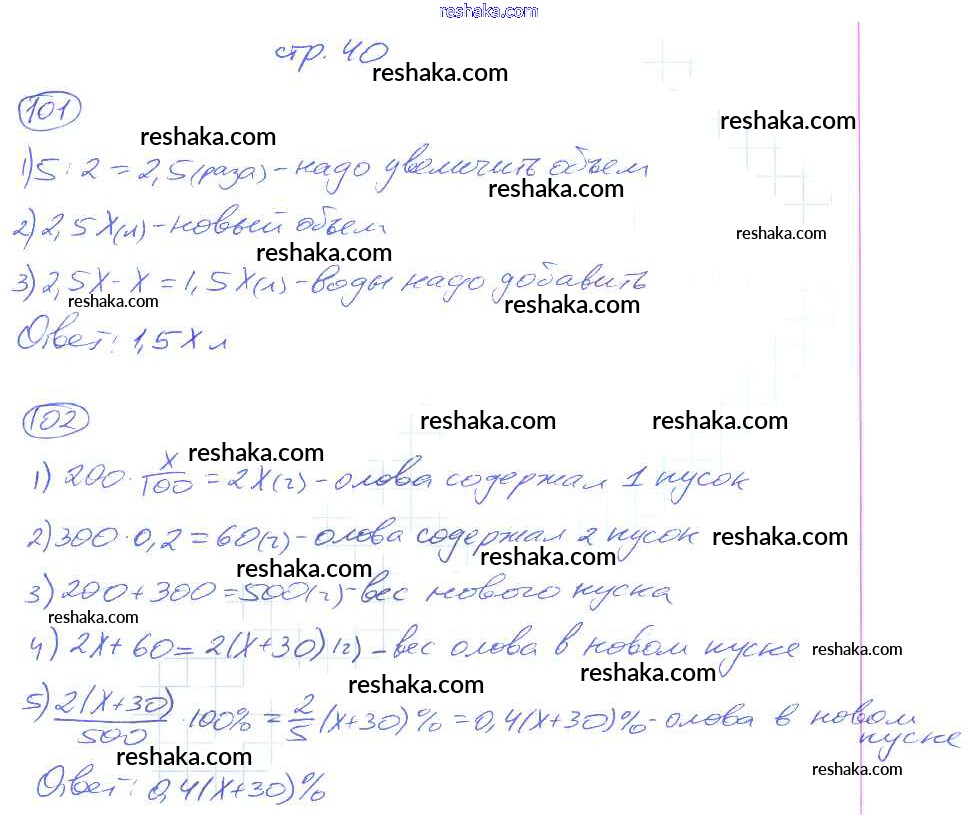 reshaka.com
стр. 40
reshaka.com
101
reshaka.com
reshaka.com
1) 5 : 2 = 2,5 (раза) - надо увеличить объем
reshaka.com
2) 2,5X (л) - новый объем
reshaka.com
reshaka.com
3) 2,5X - X = 1,5X (л) - воды надо добавить
reshaka.com
reshaka.com
Ответ: 1,5X л
102
reshaka.com
reshaka.com
reshaka.com
1) 200 · X/100 = 2X (г) - олова содержал 1 кусок
2) 300 · 0,2 = 60 (г) - олова содержал 2 кусок
reshaka.com
reshaka.com
reshaka.com
3) 200 + 300 = 500 (г) - вес нового куска
reshaka.com
4) 2X + 60 = 2(X + 30) (г) - вес олова в новом куске
reshaka.com
reshaka.com
reshaka.com
5) 2(X + 30)/500 · 100% = 2/5 (X + 30) % = 0,4(X + 30)% - олова в новом
куске
reshaka.com
reshaka.com
Ответ: 0,4(X + 30)%